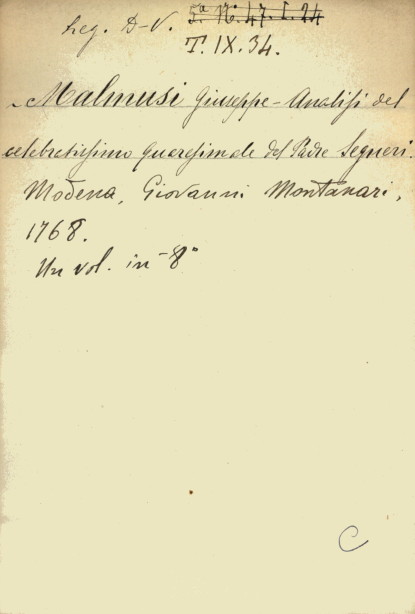 Leg. D-V. 5ª N. 47. I. 24
T. IX. 34.
Malmusi Giuseppe - Analisi del
celebratissimo Quaresimale del Padre Segneri.
Modena, Giovanni Montanari,
1768.
Un vol. in-8°
C